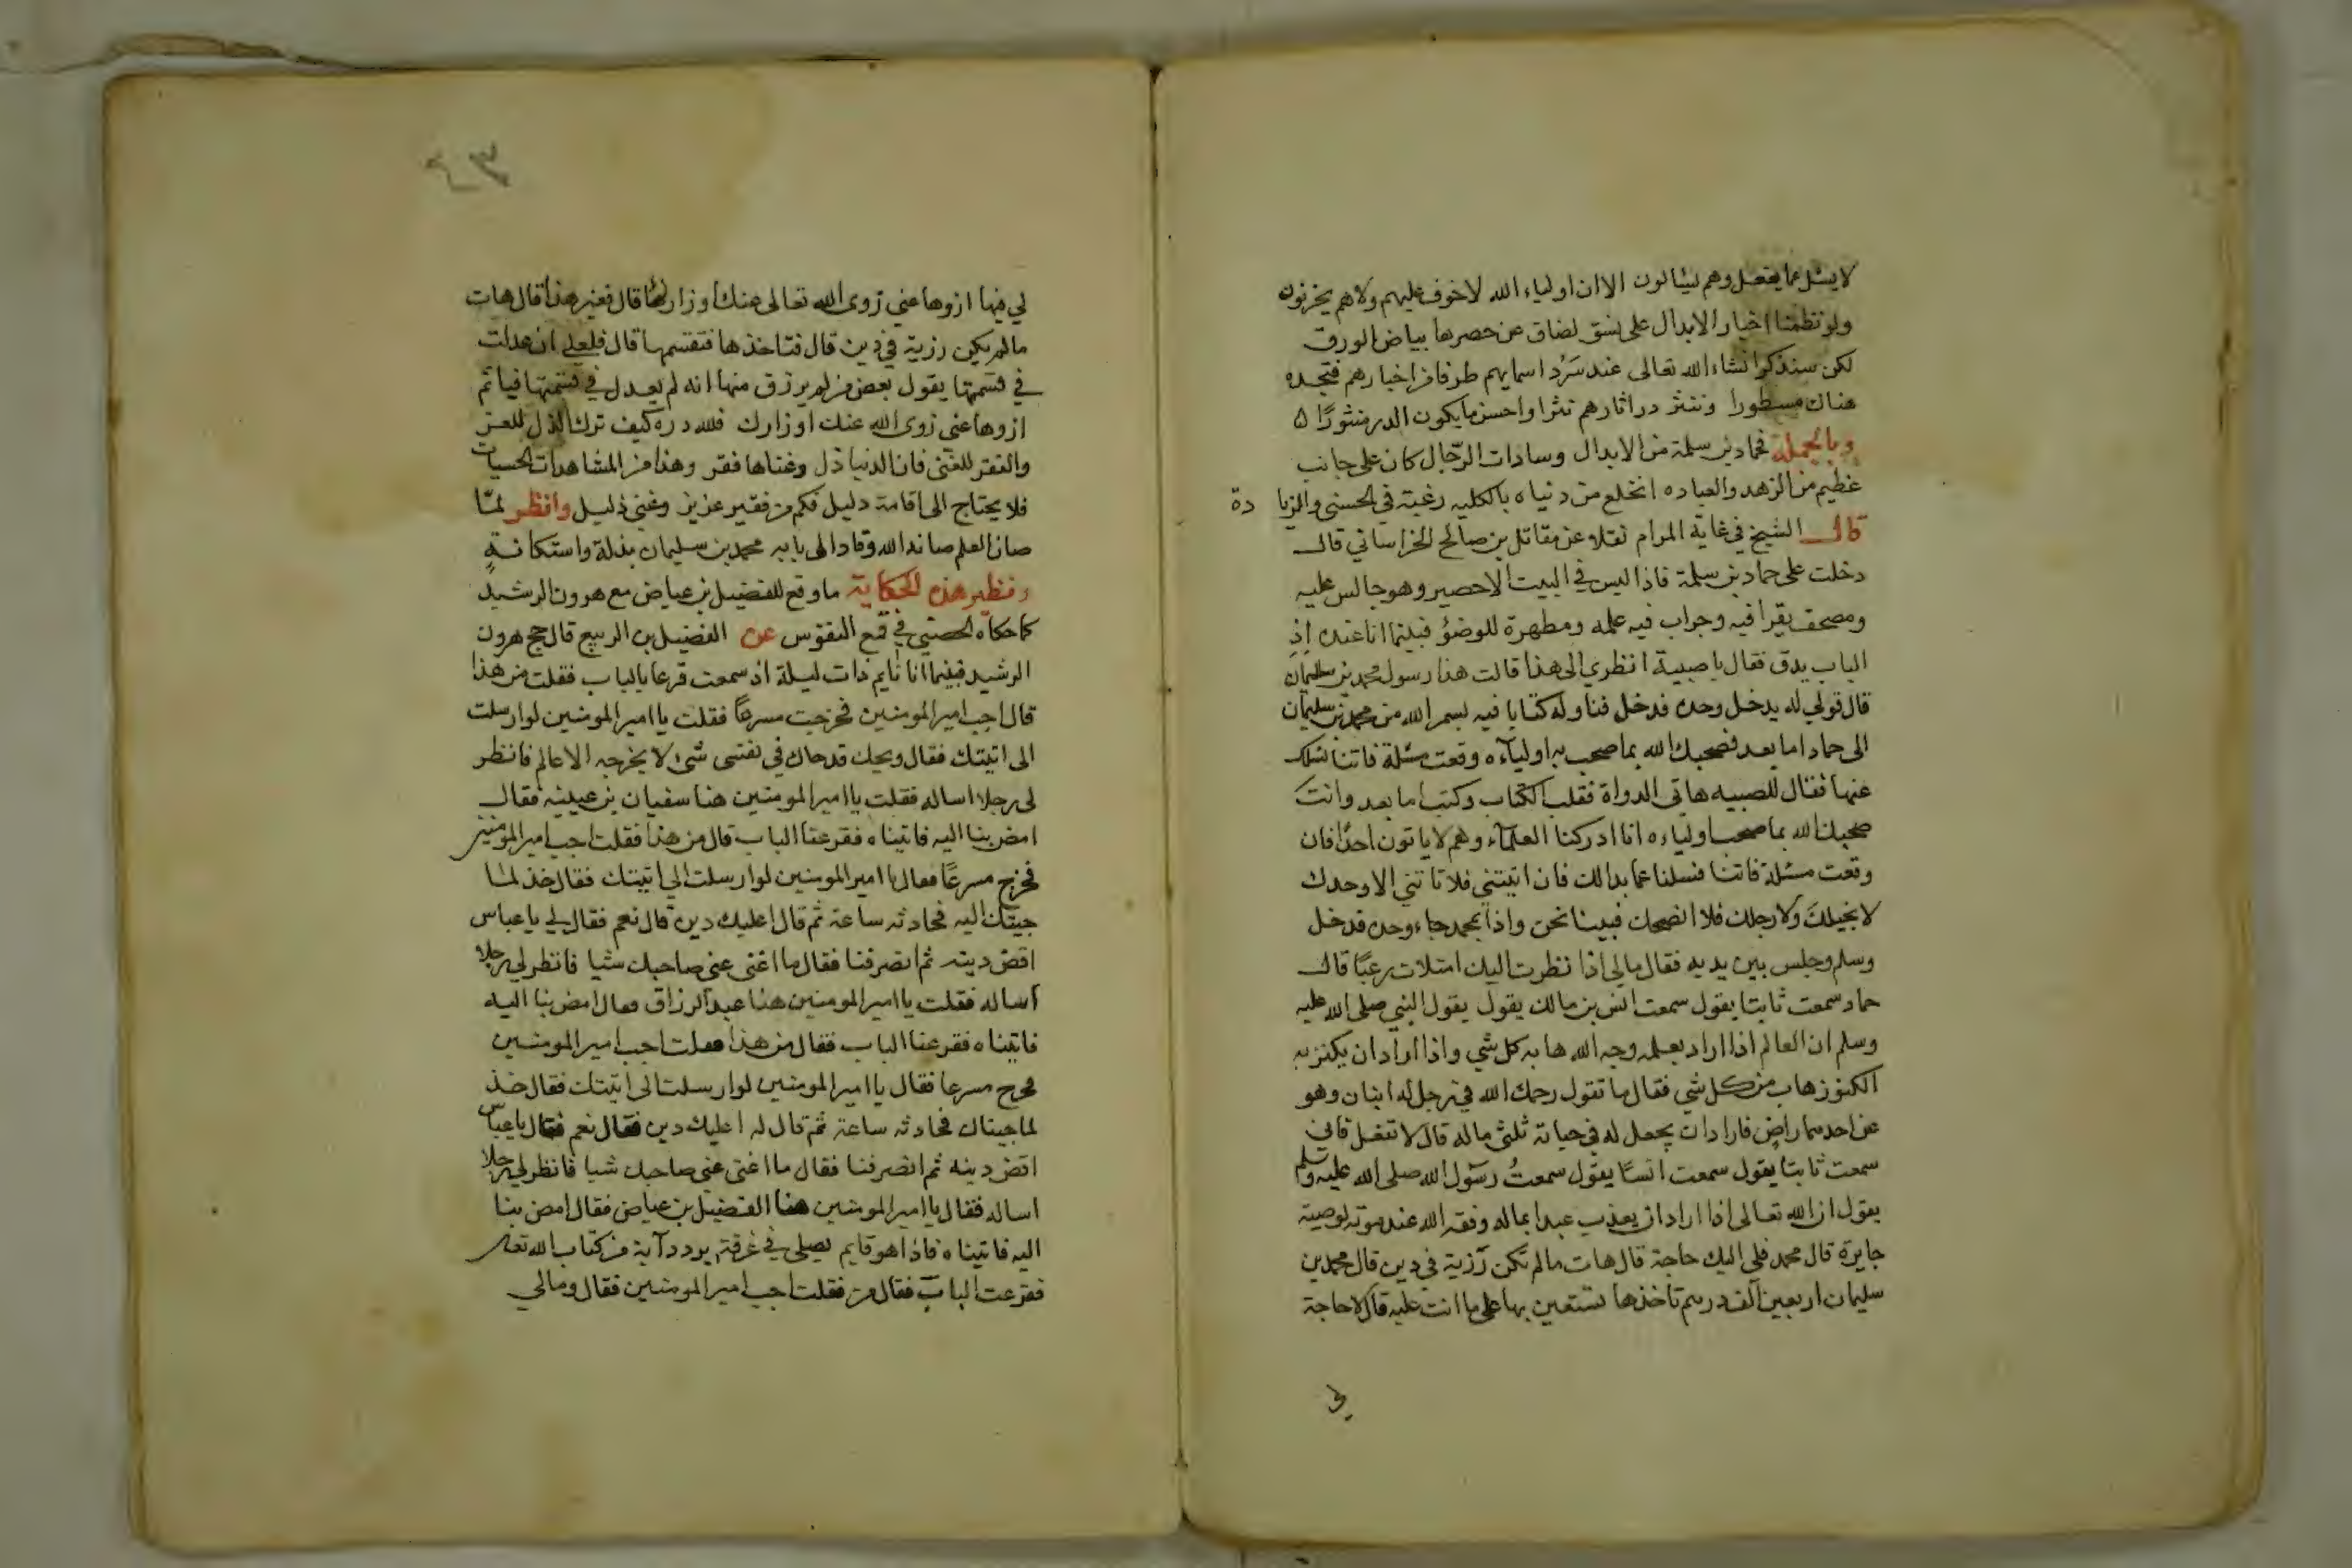 لا يسئل عما يفعل وهم يسالون الا ان اولياء الله لا خوف عليهم ولا هم يحزنون
ولو نظمنا اخبار الابدال على نسق لضاق عن حصرها بياض الورق
لكن سنذكر انشاء الله تعالى عند سرد اسمايهم طرفا من اخبارهم فتجده
هناك مسطورا وننثر در اثارهم نثرا واحسن ما يكون الدر منثورًا ٥
وبالجملة فحماد بن سلمة من الابدال وسادات الرّجال كان على جانب
عظيم من الزهد والعباده انخلع من دنياه بالكليه رغبة في الحسنى والزيا دة
قال الشيخ في غاية المرام نقلا عن مقاتل بن صالح الخراساني قال
دخلت على حماد بن سلمة فاذا ليس في البيت الا حصير وهو جالس عليه
ومصحف يقرا فيه وجراب فيه علمه ومطهرة للوضؤ فبينما انا عنده اذ
الباب يدق فقال يا صبية انظري الى هذا قالت هذا رسول محمد بن سليمان
قال قولي له يدخل وحده فدخل فناوله كتابا فيه بسم الله من محمد بن سليمان
الى حماد اما بعد فصبحك الله بما صبح به اولياءه وقعت مسئلة فاتنا نسلك
عنها فقال للصبيه هاتى الدواة فقلب الكتاب وكتب اما بعد وانت
صبحك الله بما صبح اولياءه انا ادركنا العلماء وهم لا ياتون احدًا فان
وقعت مسئلة فاتنا فسلنا عما بدا لك فان اتيتني فلا تاتني الا وحدك
لا بخيلك ولا رجلك فلا انصحك فبينا نحن واذا بمحمد جاء وحده فدخل
وسلم وجلس بين يديه فقال مالي اذا نظرت اليك امتلات رعبًا قال
حماد سمعت ثابتا يقول سمعت انس بن مالك يقول يقول النبي صلى الله عليه
وسلم ان العالم اذا اراد بعلمه وجه الله هابه كل شي واذا اراد ان يكنز به
الكنوز هاب من كل شي فقال ما تقول رحمك الله في رجل له ابنان وهو
عن احدهما راضٍ فاراد ان يجعل له في حياته ثلثي ماله قال لا تفعل فاني
سمعت ثابتا يقول سمعت انسًا يقول سمعتُ رسول الله صلى الله عليه وسلم
يقول ان الله تعالى اذا اراد ان يعذب عبدا بماله وفقه الله عند موته لوصية
جايرة قال محمد فلي اليك حاجة قال هات ما لم تكن رزية في دين قال محمد بن
سليمان اربعين الف درهم تاخذها تستعين بها على ما انت عليه قال لا حاجة
لي
لي فيها ازوها عني زوى الله تعالى عنك اوزارها قال فغير هذا قال هات
مالم يكن رزية في دين قال فتاخذها فتقسمها قال فلعلي ان عدلت
في قسمتها يقول بعض من لم يرزق منها انه لم يعدل في قسمتها فياثم
ازوها عني زوى الله عنك اوزارك فلله دره كيف ترك الذل للعز
والفقر للغنى فان الدنيا ذل وغناها فقر وهذا من المشاهدات الحسيات
فلا يحتاج الى اقامة دليل فكم من فقير عزيز وغني ذليل وانظر لمّا
صان العلم صانه الله وقاد الى بابه محمد بن سليمان بذلة واستكانةٍ
ونظير هذه الحكاية ما وقع للفضيل بن عياض مع هرون الرشيد
كما حكاه الحصني في قمع النفوس عن الفضيل بن الربيع قال حج هرون
الرشيد فبينما انا نايم ذات ليلة اذ سمعت قرعا بالباب فقلت من هذا
قال اجب امير المومنين فخرجت مسرعًا فقلت يا امير المومنين لو ارسلت
الى اتيتك فقال ويحك قد حاك في نفسى شئ لا يخرجه الا عالم فانظر
لى رجلا اساله فقلت يا امير المومنين هنا سفيان بن عيينه فقال
امض بنا اليه فاتيناه فقرعنا الباب قال من هذا فقلت اجب امير المومنين
فخرج مسرعًا فقال يا امير المومنين لو ارسلت الي اتيتك فقال خذ لما
جيتك اليه فحادثه ساعة ثم قال اعليك دين قال نعم فقال لي يا عباس
اقض دينه ثم انصرفنا فقال ما اغنى عنى صاحبك شيا فانظر لي رجلا
اساله فقلت يا امير المومنين هنا عبد الرزاق فقال امض بنا اليه
فاتيناه فقرعنا الباب فقال من هذا فقلت اجب امير المومنين
فخرج مسرعا فقال يا امير المومنين لو ارسلت الى اتيتك فقال خذ
لما جيناك فحادثه ساعة ثم قال له اعليك دين فقال نعم فقال يا عباس
اقض دينه ثم انصرفنا فقال ما اغنى عنى صاحبك شيا فانظر لي رجلا
اساله فقال يا امير المومنين هنا الفضيل بن عياض فقال امض بنا
اليه فاتيناه فاذا هو قايم يصلي في غرفة يردد آية من كتاب الله تعالى
فقرعت الباب فقال من فقلت اجب امير المومنين فقال ومالي